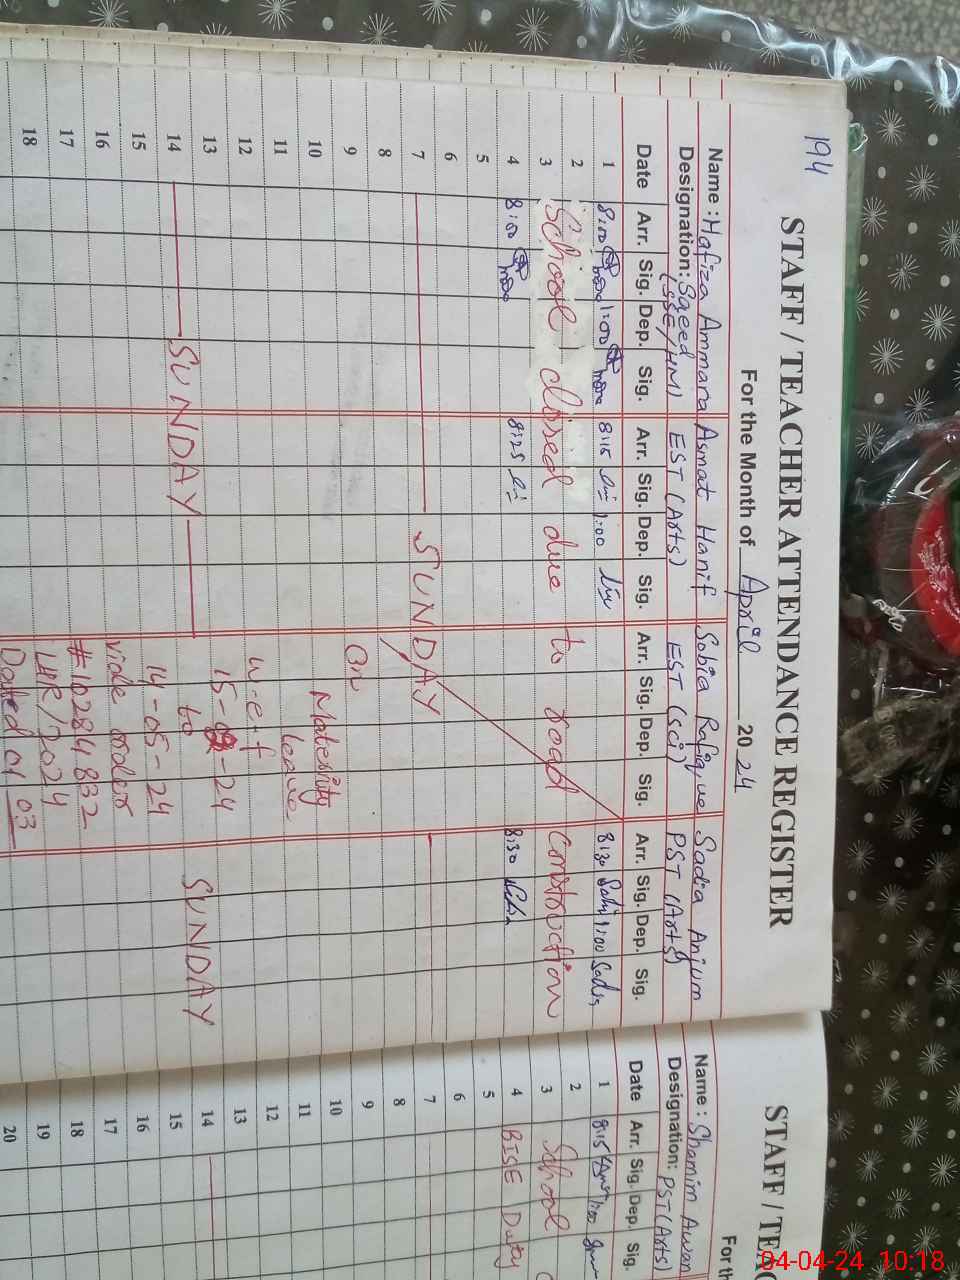 194
STAFF / TEACHER ATTENDANCE REGISTER
For the Month of April 2024
Name : Hafiza Ammara Saeed Asmat Hanif Sobia Rafique Sadia Anjum
Designation: (SSE/HM) EST (Arts) EST (Sci) PST (Arts)
Date Arr. Sig. Dep. Sig. Arr. Sig. Dep. Sig. Arr. Sig. Dep. Sig. Arr. Sig. Dep. Sig.
1 8:00 1:00 8:15 1:00 8:30 1:00 Sadia
2
3 School closed due to road Construction
4 8:00 8:25 8:30
5
6
7 SUNDAY
8
9 On
10 Maternity
11 leave
12 w.e.f
13 15- -24
to
14 SUNDAY 14-05-24 SUNDAY
15
16 vide order
17 #10284832
LHR/2024
18 Dated 01 03
STAFF / TEAC
For th
Name : Shamim Awan
Designation: PST (Arts)
Date Arr. Sig. Dep. Sig.
1 8:15 1:00
2
3 School
4 BISE Duty
5
6
7
8
9
10
11
12
13
14
15
16
17
18
19
20
04-04-24 10:18